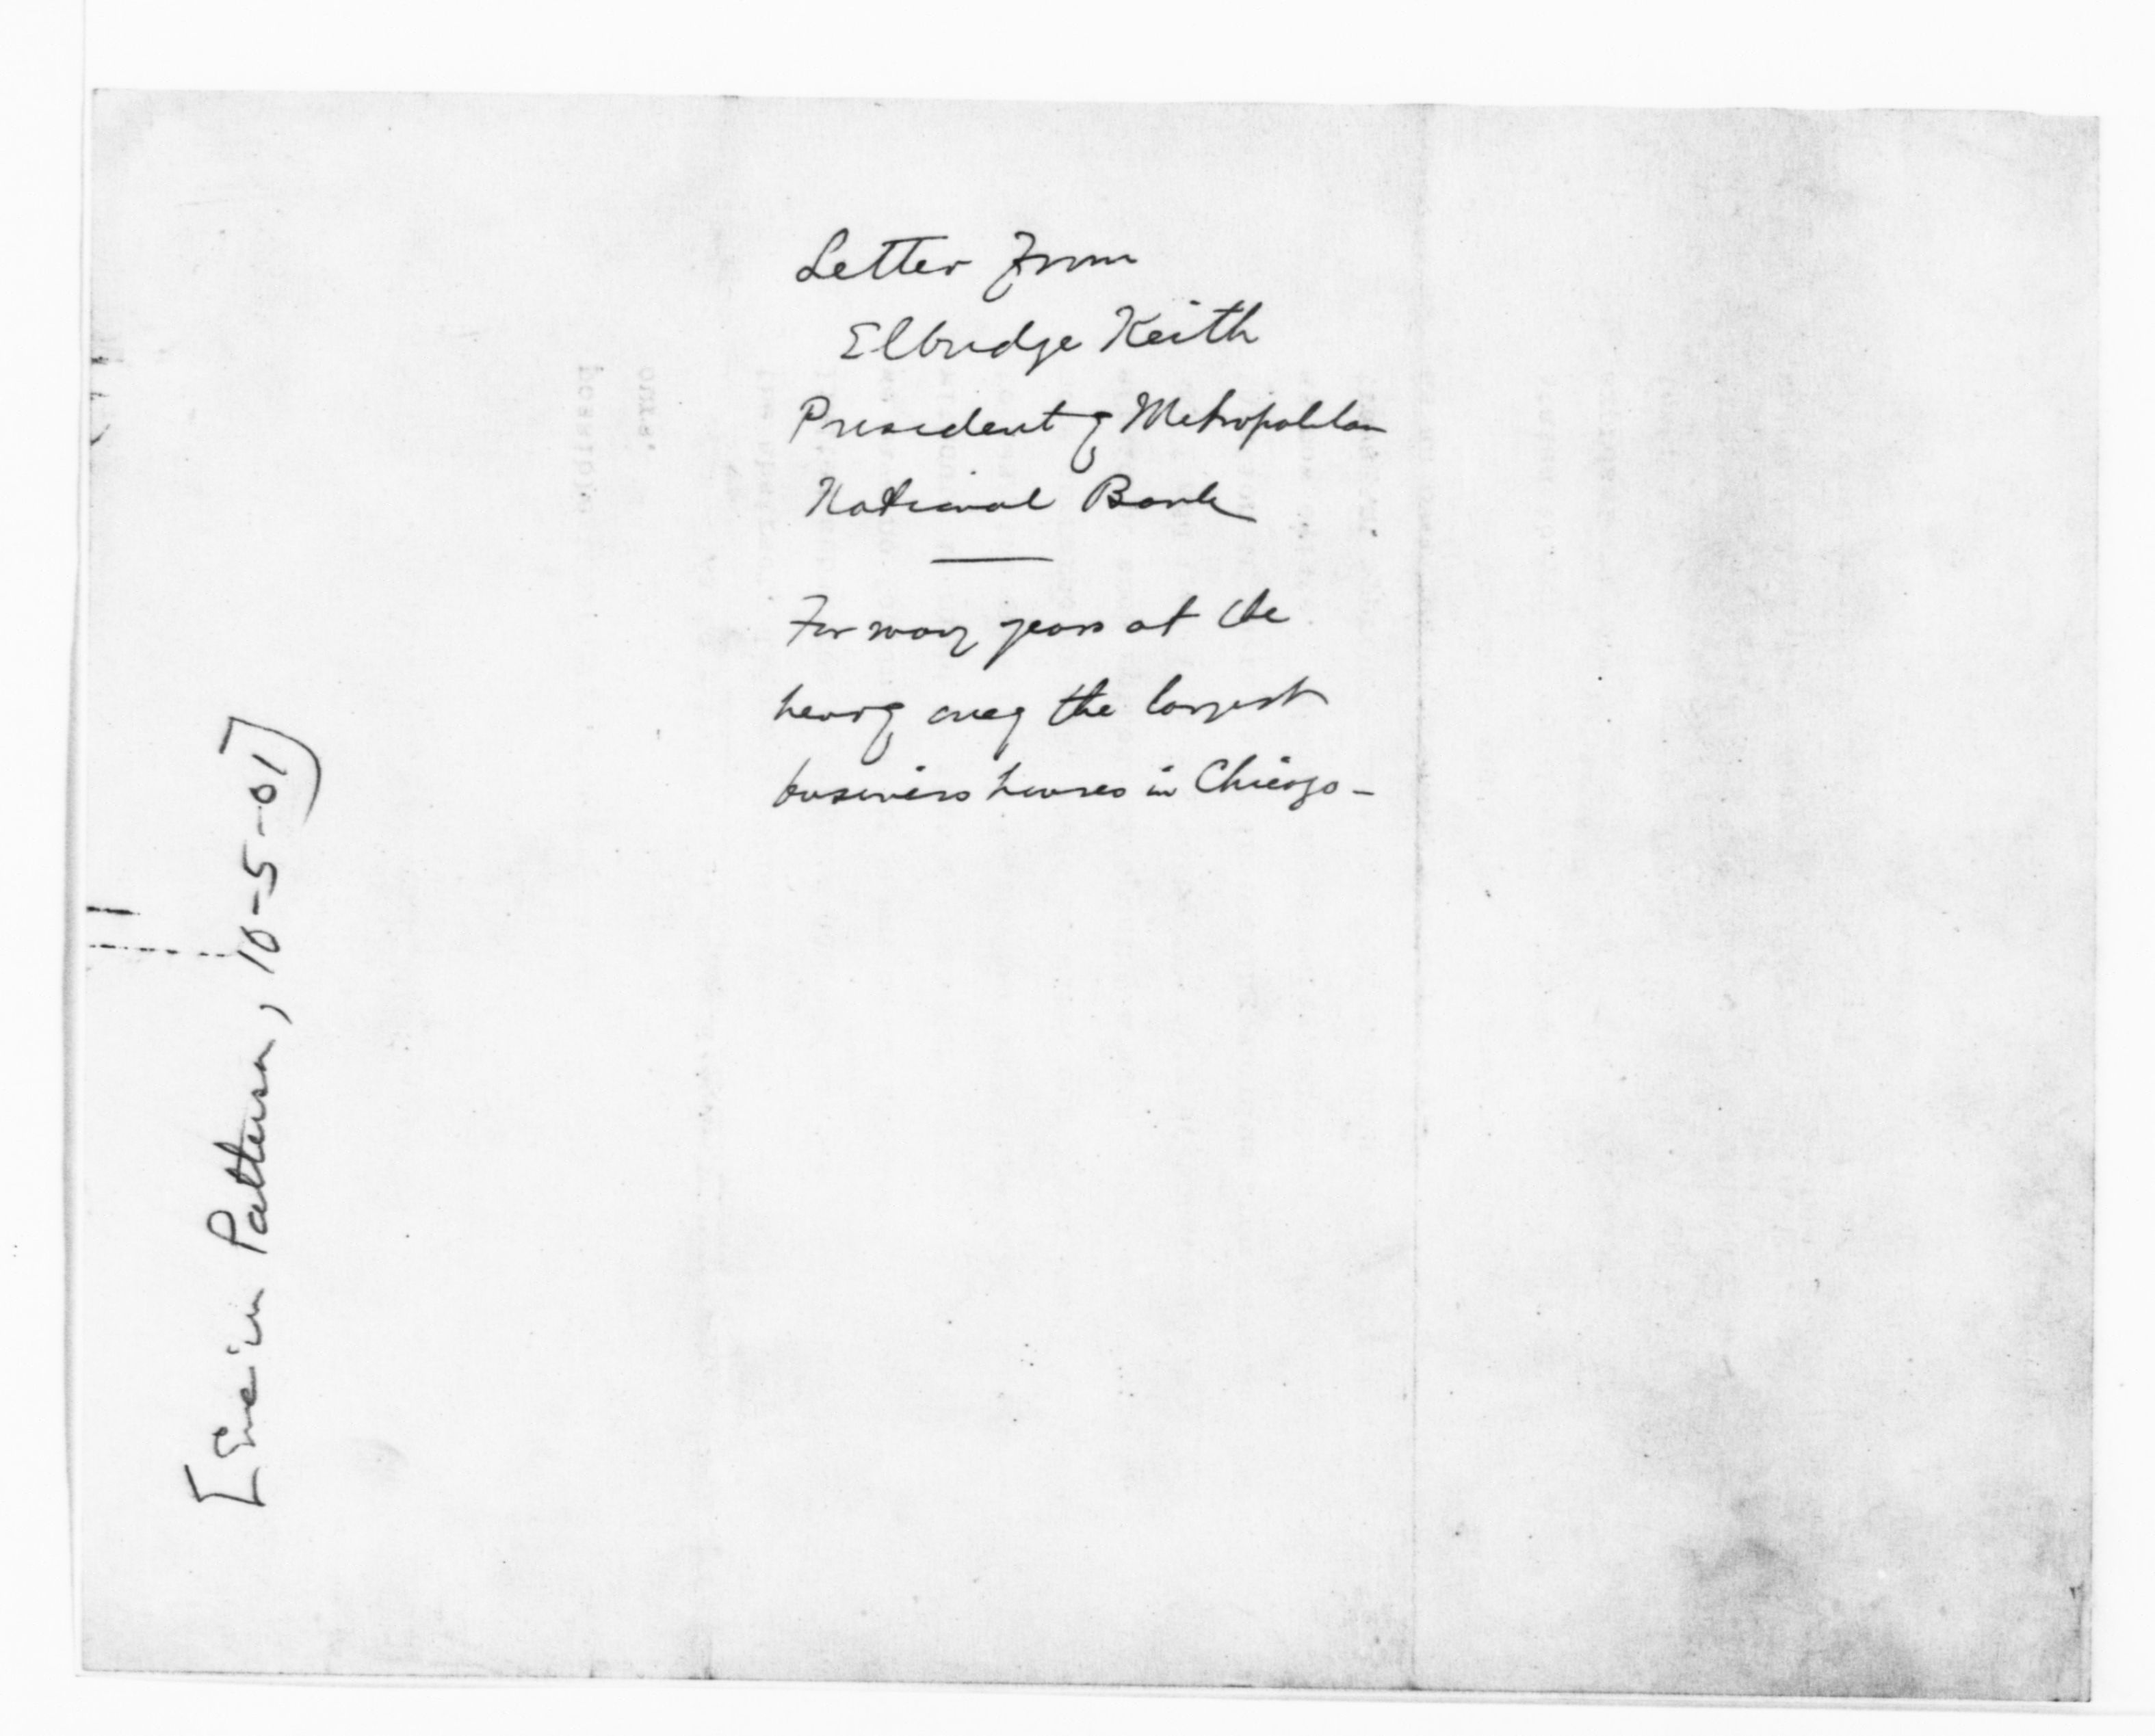 Letter From
Elbridge Keith
President of Metropolitan
National Bank
For many years at the
head of one of the largest
business houses in Chicago -
[ Patterson, 10-5-01]